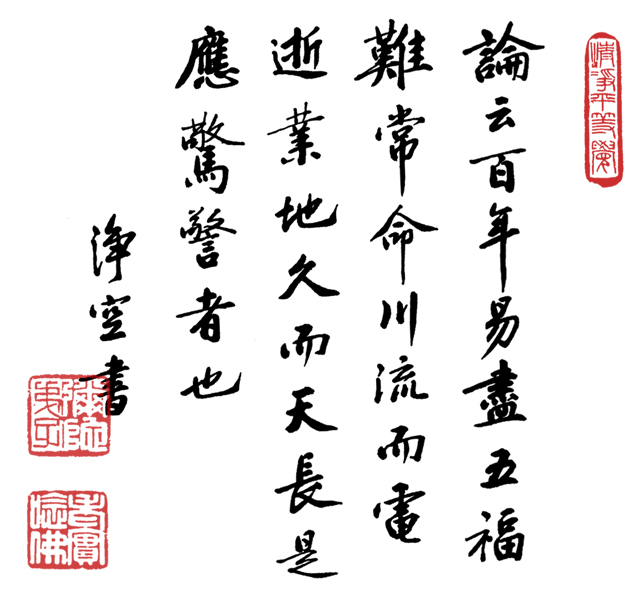 清淨平等覺
論云百年易盡五福
難常命川流而電
逝業地久而天長是
應驚警者也
淨空書
老實
念佛